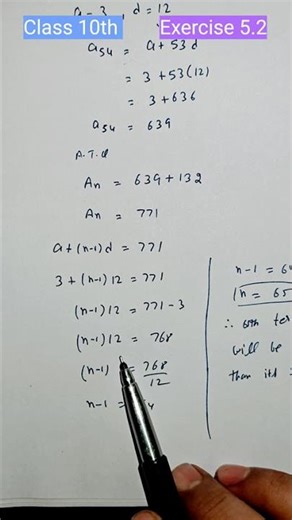 Class 10th Exercise 5.2
a = 3, d = 12
a₅₄ = a + 53d
= 3 + 53(12)
= 3 + 636
a₅₄ = 639
A.T.Q
An = 639 + 132
An = 771
a + (n-1)d = 771
3 + (n-1)12 = 771
(n-1)12 = 771 - 3
(n-1)12 = 768
(n-1) = 768/12
n-1 =
n-1 = 64
n = 65
∴ 65th ter
will be
than its